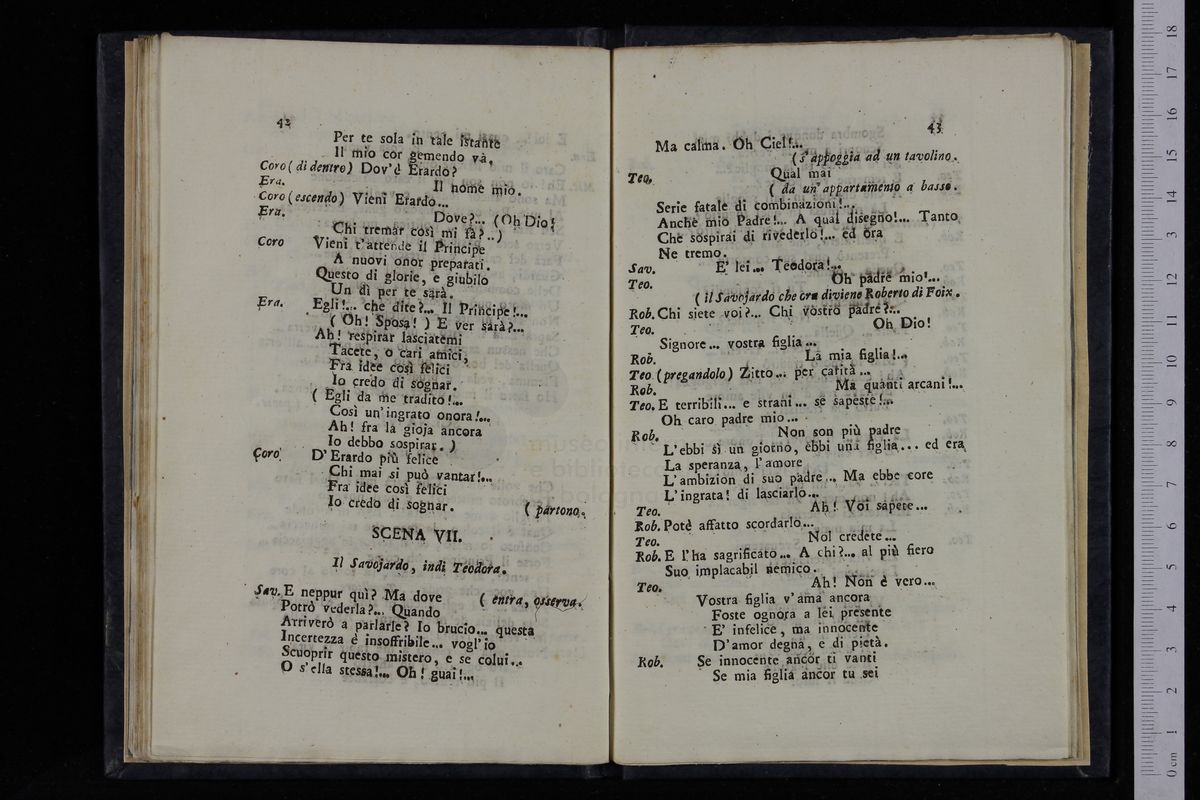 42
Per te sola in tale istante
Il mio cor gemendo và.
Coro (di dentro) Dov'è Erardo?
Era. Il nome mio.
Coro (escendo) Vieni Erardo...
Era. Dove?... (Oh Dio!
Chi tremar così mi fà?..)
Coro Vieni t'attende il Principe
A nuovi onor preparati.
Questo di glorie, e giubilo
Un dì per te sarà.
Era. Egli!... che dite?... Il Principe!...
( Oh! Sposa! ) E ver sarà?...
Ah! respirar lasciatemi
Tacete, o cari amici,
Fra idee così felici
Io credo di sognar.
( Egli da me tradito!...
Così un'ingrato onora!...
Ah! fra la gioja ancora
Io debbo sospirar. )
Coro D'Erardo più felice
Chi mai si può vantar!...
Fra idee così felici
Io credo di sognar. ( partono.
SCENA VII.
Il Savojardo, indi Teodora.
Sav. E neppur quì? Ma dove ( entra, osserva.
Potrò vederla?... Quando
Arriverò a parlarle? Io brucio... questa
Incertezza è insoffribile... vogl'io
Scuoprir questo mistero, e se colui...
O s'ella stessa!... Oh! guai!...
43
Ma calma. Oh Ciel!...
(s'appoggia ad un tavolino.
Teo. Qual mai
( da un'appartamento a basso.
Serie fatale di combinazioni!...
Anche mio Padre!... A qual disegno!... Tanto
Che sospirai di rivederlo!... ed ora
Ne tremo.
Sav. E' lei... Teodora!...
Teo. Oh padre mio!...
( il Savojardo che era diviene Roberto di Foix.
Rob. Chi siete voi?... Chi vostro padre?...
Teo. Oh Dio!
Signore... vostra figlia...
Rob. La mia figlia!...
Teo (pregandolo) Zitto... per carità...
Rob. Ma quanti arcani!...
Teo. E terribili... e strani... se sapeste!...
Oh caro padre mio...
Rob. Non son più padre
L'ebbi sì un giorno, ebbi una figlia... ed era
La speranza, l'amore
L'ambizion di suo padre... Ma ebbe core
L'ingrata! di lasciarlo...
Teo. Ah! Voi sapete...
Rob. Potè affatto scordarlo...
Teo. Nol credete...
Rob. E l'ha sagrificato... A chi?... al più fiero
Suo implacabil nemico.
Teo. Ah! Non è vero...
Vostra figlia v'ama ancora
Foste ognora a lei presente
E' infelice, ma innocente
D'amor degna, e di pietà.
Rob. Se innocente ancor ti vanti
Se mia figlia ancor tu sei
0 cm 1 2 3 4 5 6 7 8 9 10 11 12 13 14 15 16 17 18